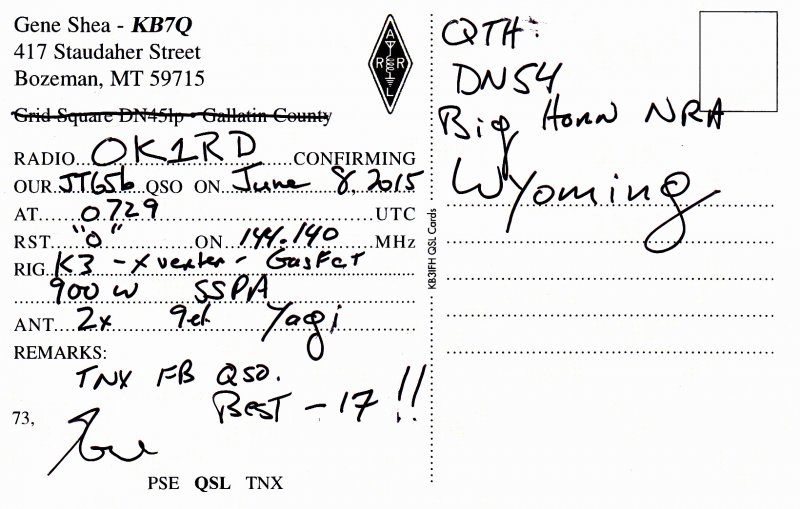 Gene Shea - KB7Q
417 Staudaher Street
Bozeman, MT 59715
ARRL
Grid Square DN45lp • Gallatin County
RADIO OK1RD CONFIRMING
OUR JT65b QSO ON June 8, 2015
AT 0729 UTC
RST "0" ON 144.140 MHz
RIG K3 - Xverter - GasFet
900 W SSPA
ANT 2x 9el Yagi
REMARKS:
TNX FB QSO.
BEST -17 !!
73,
Gene
PSE QSL TNX
KB3IFH QSL Cards
QTH:
DN54
Big Horn NRA
Wyoming